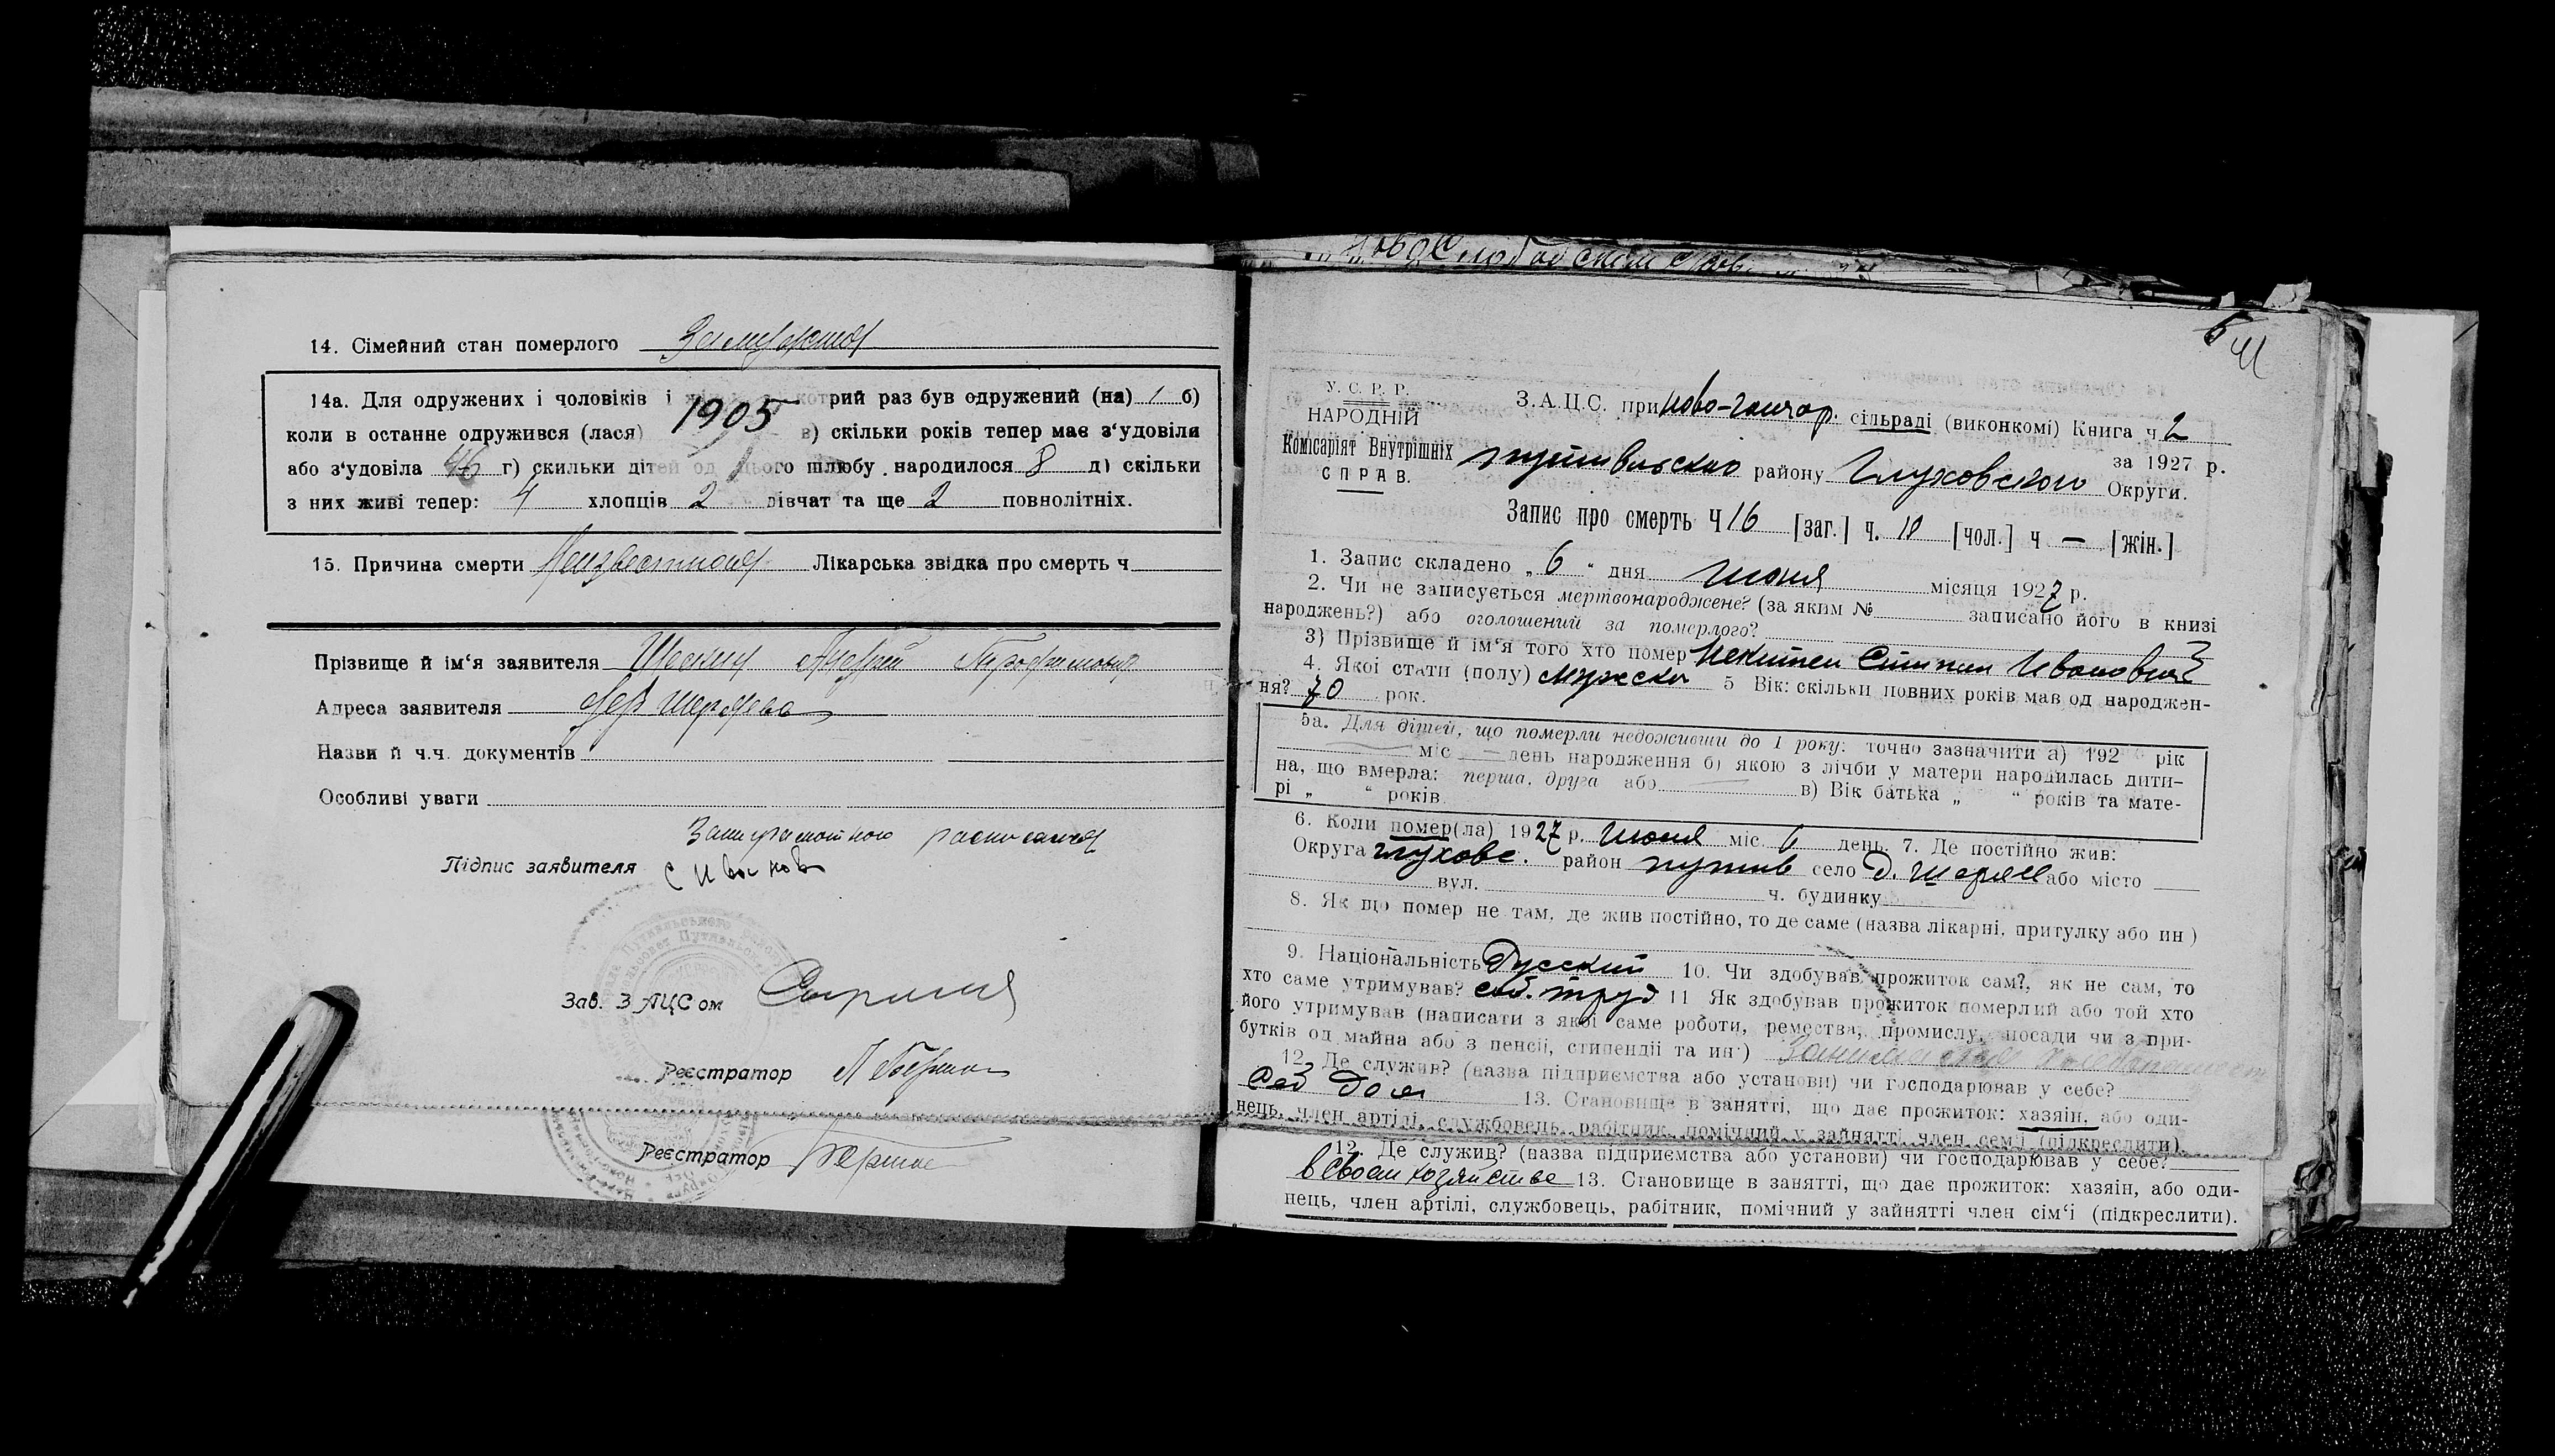 14. Сімейний стан померлого Замужняя
14а. Для одружених і чоловіків і котрий раз був одружений (на) 1 б)
коли в останнє одружився (лася) 1905 в) скільки років тепер має з'удовіли
або з'удовіла 46 г) скильки дітей од цього шлюбу народилося 8 д) скільки
з них живі тепер: 4 хлопців 2 дівчат та ще 2 повнолітніх.
15. Причина смерти Неизвестная Лікарська звідка про смерть ч
Прізвище й ім'я заявителя Андрей
Адреса заявителя
Назви й ч.ч. документів
Особливі уваги
расписался
Підпис заявителя С Иванов
Зав. ЗАЦСом
Реєстратор
Реєстратор
У. С. Р. Р.
НАРОДНІЙ
Комісаріят Внутрішніх
СПРАВ.
З.А.Ц.С. при Ново-Гончар. сільраді (виконкомі) Книга ч 2
за 1927 р.
Путивльского району Глуховского Округи.
Запис про смерть Ч 16 [заг.] ч. 10 [чол.] ч — [жін.]
1. Запис складено „ 6 “ дня Июня місяця 1927 р.
2. Чи не записується мертвонароджене? (за яким № записано його в книзі
народжень?) або оголошений за померлого?
3) Прізвище й ім'я того хто помер Степан Иванович
4. Якої стати (полу) мужска 5 Вік: скільки повних років мав од народжен-
ня? 70 рок.
5а. Для дітей, що померли недоживши до 1 року: точно зазначити а) 192 рік
міс — день народження б) якою з лічби у матери народилась дити-
на, що вмерла: перша, друга або в) Вік батька „ “ років та мате-
рі „ “ років.
6. Коли помер(ла) 1927 р. Июня міс. 6 день. 7. Де постійно жив:
Округа Глуховс. район Путив село Д. або місто
вул. ч. будинку
8. Як що помер не там, де жив постійно, то де саме (назва лікарні, притулку або ин )
9. Національність Русский 10. Чи здобував прожиток сам?, як не сам, то
хто саме утримував? соб. труд 11 Як здобував прожиток померлий або той хто
його утримував (написати з якої саме роботи, ремества, промислу, посади чи з при-
бутків од майна або з пенсії, стипендії та ин )
12. Де служив? (назва підприємства або установи) чи господарював у себе?
13. Становище в занятті, що дає прожиток: хазяін, або оди-
нець, член артілі, службовець, рабітник, помічний у зайнятті член семїі (підкреслити).
12. Де служив? (назва підприємства або установи) чи господарював у себе?
в своем хозяйстве 13. Становище в занятті, що дає прожиток: хазяін, або оди-
нець, член артілі, службовець, рабітник, помічний у зайнятті член сім'ї (підкреслити).